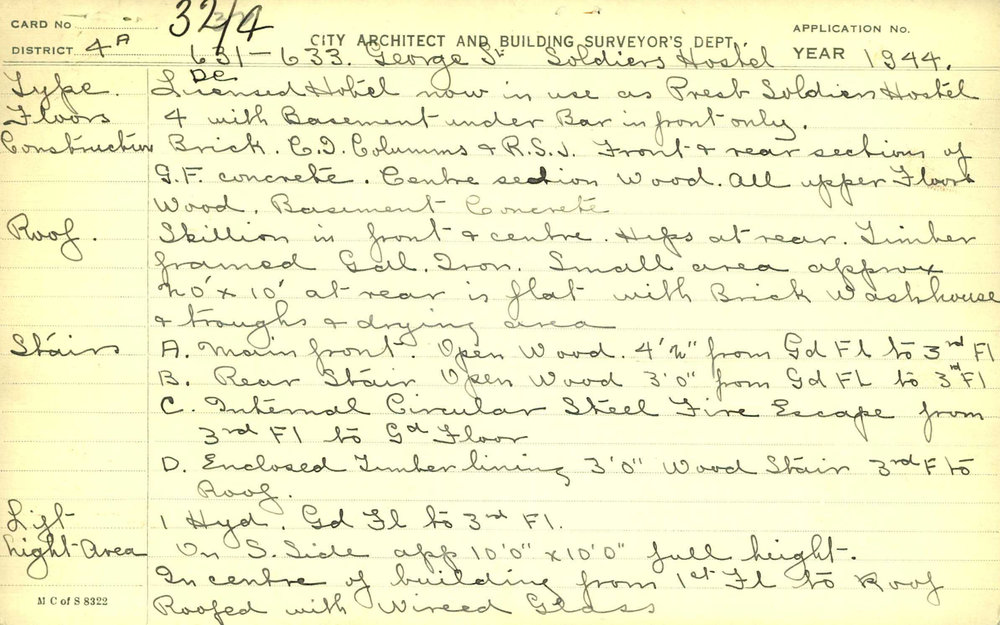 CARD No 32/4
APPLICATION No.
DISTRICT 4A
CITY ARCHITECT AND BUILDING SURVEYOR'S DEPT.
YEAR 1944.
631-633. George St. Soldiers Hostel
Type. De Licensed Hotel now in use as Presb Soldiers Hostel
Floors 4 with Basement under Bar in front only.
Construction Brick. C.I. Columns & R.S.J. Front & rear sections of
G.F. concrete. Centre section Wood. All upper Floors
Wood. Basement Concrete
Roof. Skillion in front & centre. Hips at rear. Timber
framed Gal. Iron. Small area approx
20' x 10' at rear is flat with Brick Washhouse
& troughs & drying area
Stairs A. Main front. Open Wood. 4'2" from Gd Fl to 3rd Fl
B. Rear Stair Open Wood 3'0" from Gd FL to 3rd Fl
C. Internal Circular Steel Fire Escape from
3rd Fl to Gd Floor
D. Enclosed Timber lining 3'0" Wood Stair 3rd F to
Roof.
Lift 1 Hyd. Gd Fl to 3rd Fl.
Light Area On S. Side app 10'0" x 10'0" full height.
In centre of building from 1st Fl to Roof
M C of S 8322
Roofed with Wireed Glass